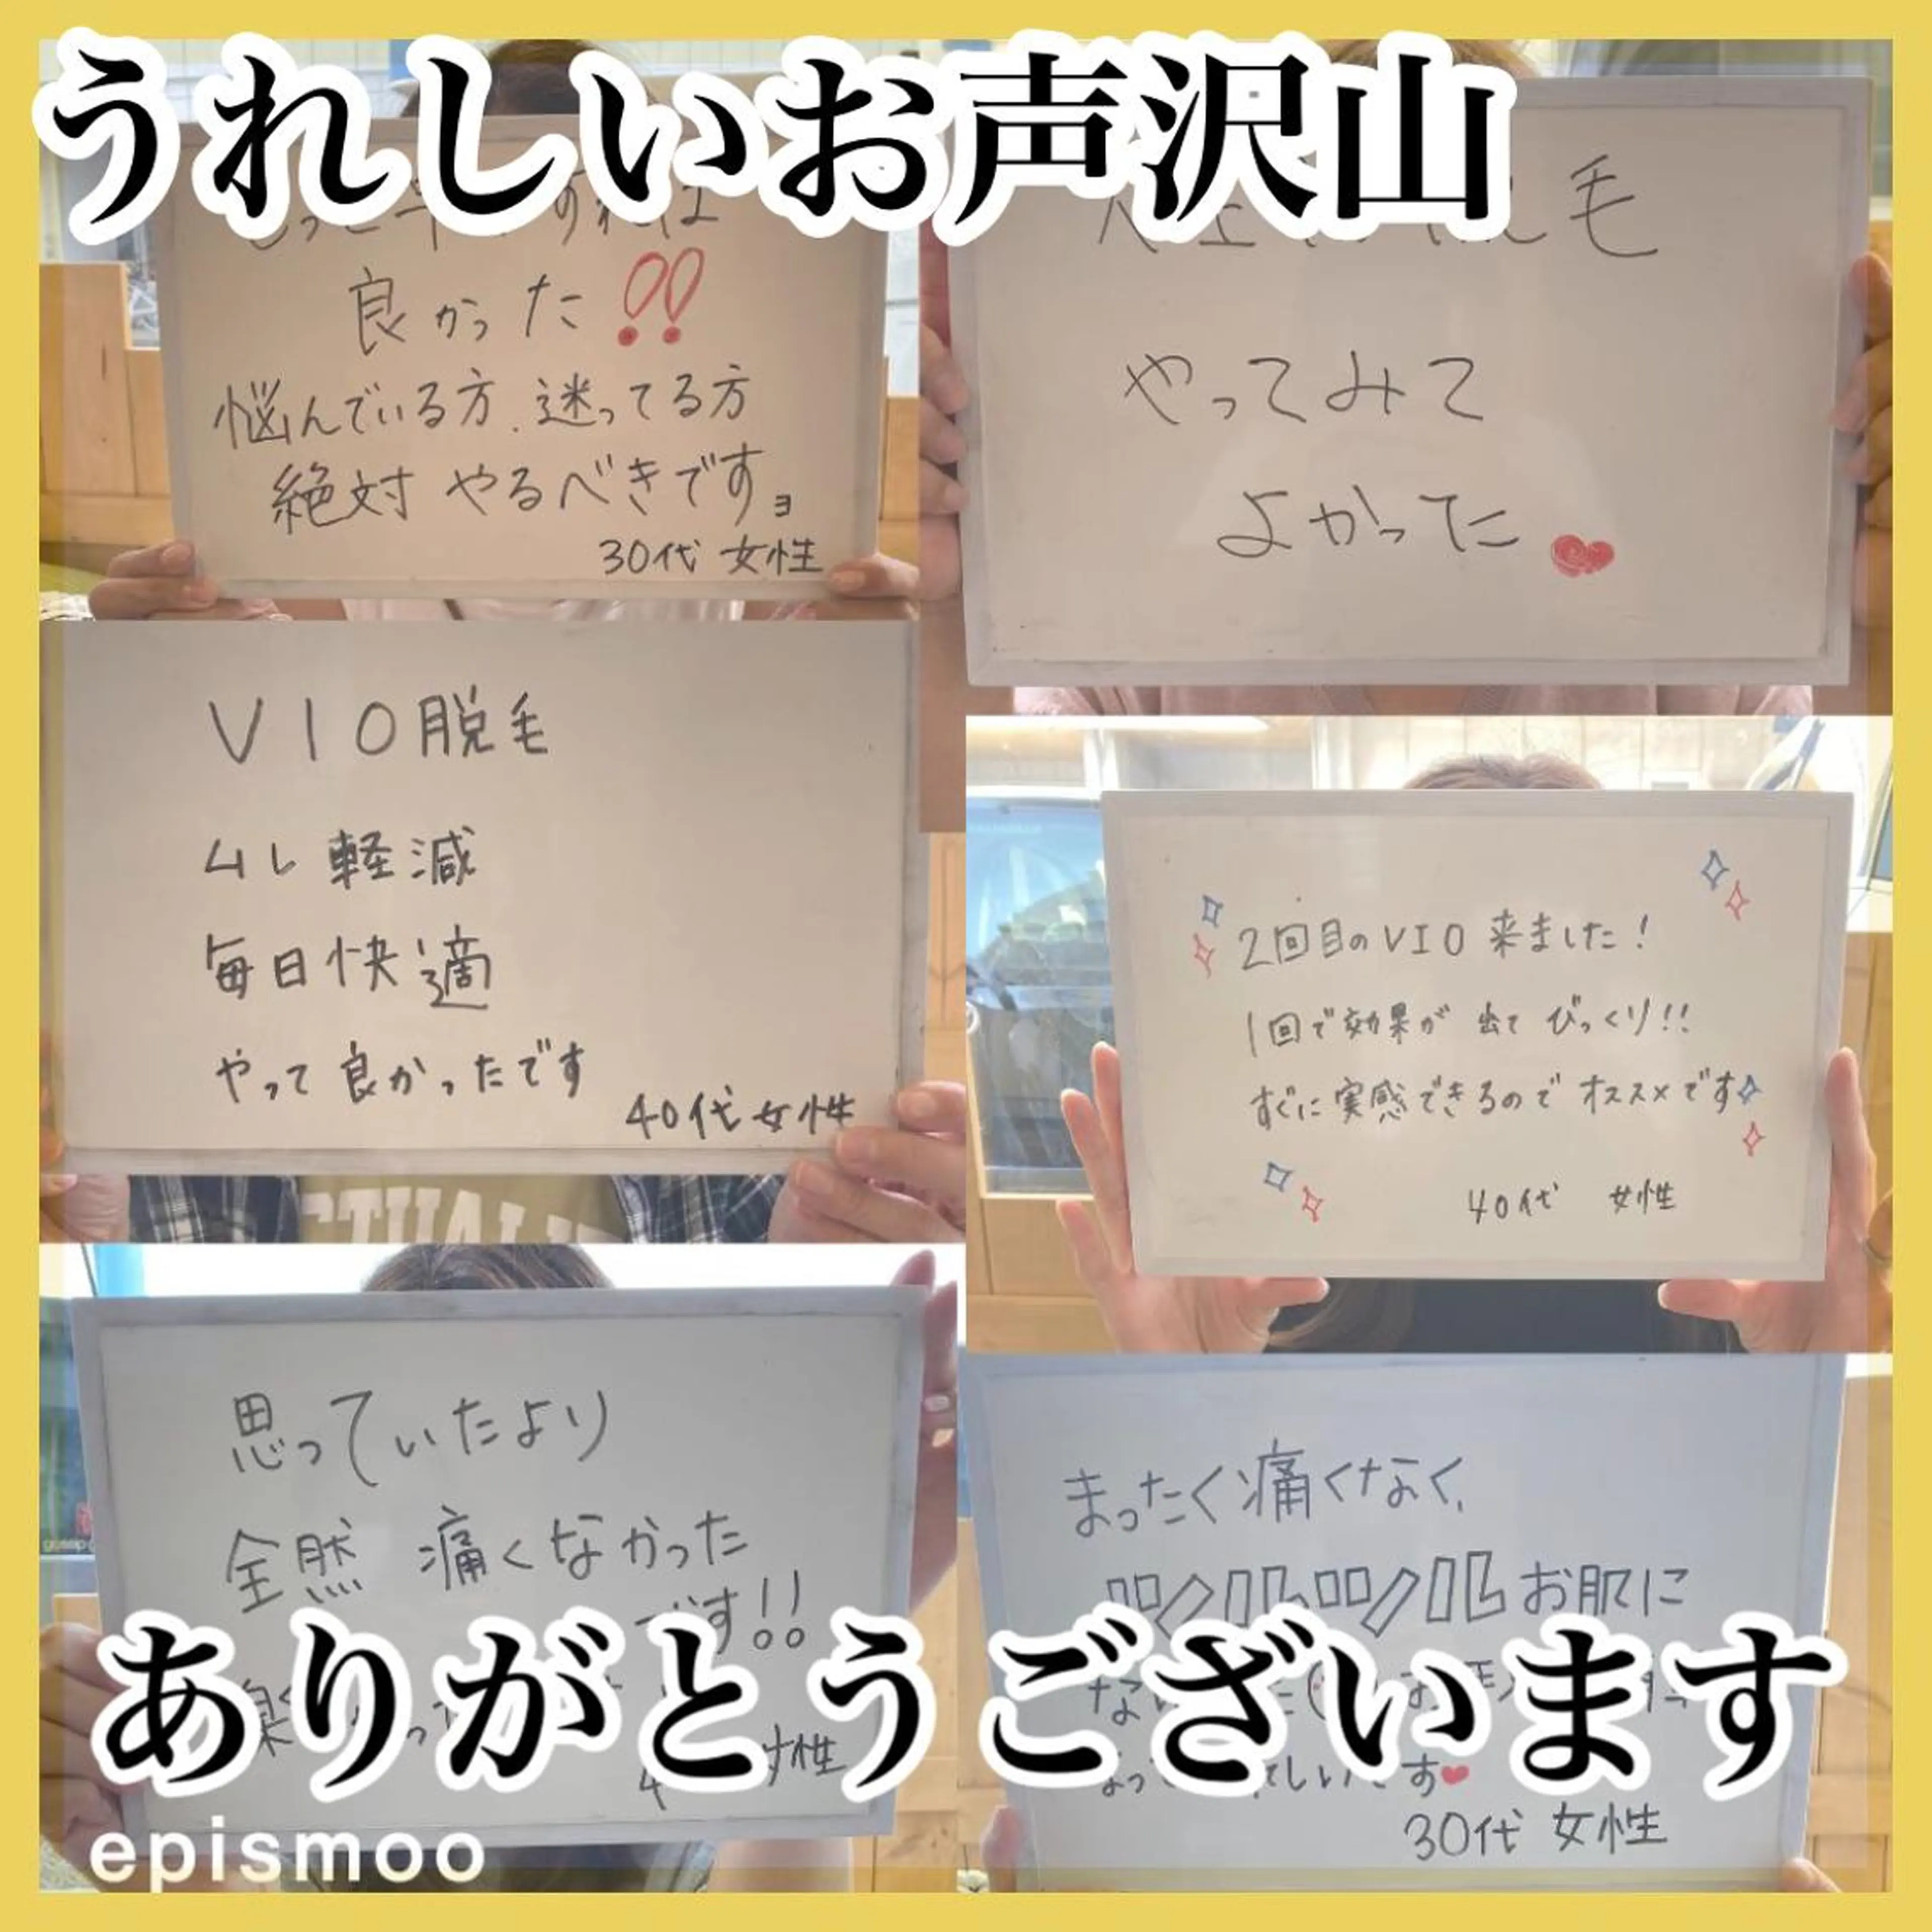 うれしいお声沢山
良かった!!
悩んでいる方、迷ってる方
絶対やるべきですョ
30代 女性
脱毛
やってみて
よかった
VIO脱毛
ムレ軽減
毎日快適
やって良かったです
40代女性
2回目のVIO来ました!
1回で効果が出てびっくり!!
すぐに実感できるのでオススメです
40代 女性
思っていたより
全然 痛くなかった
です!!
女性
まったく痛くなく、
ツルツルお肌に
30代 女性
ありがとうございます
epismoo